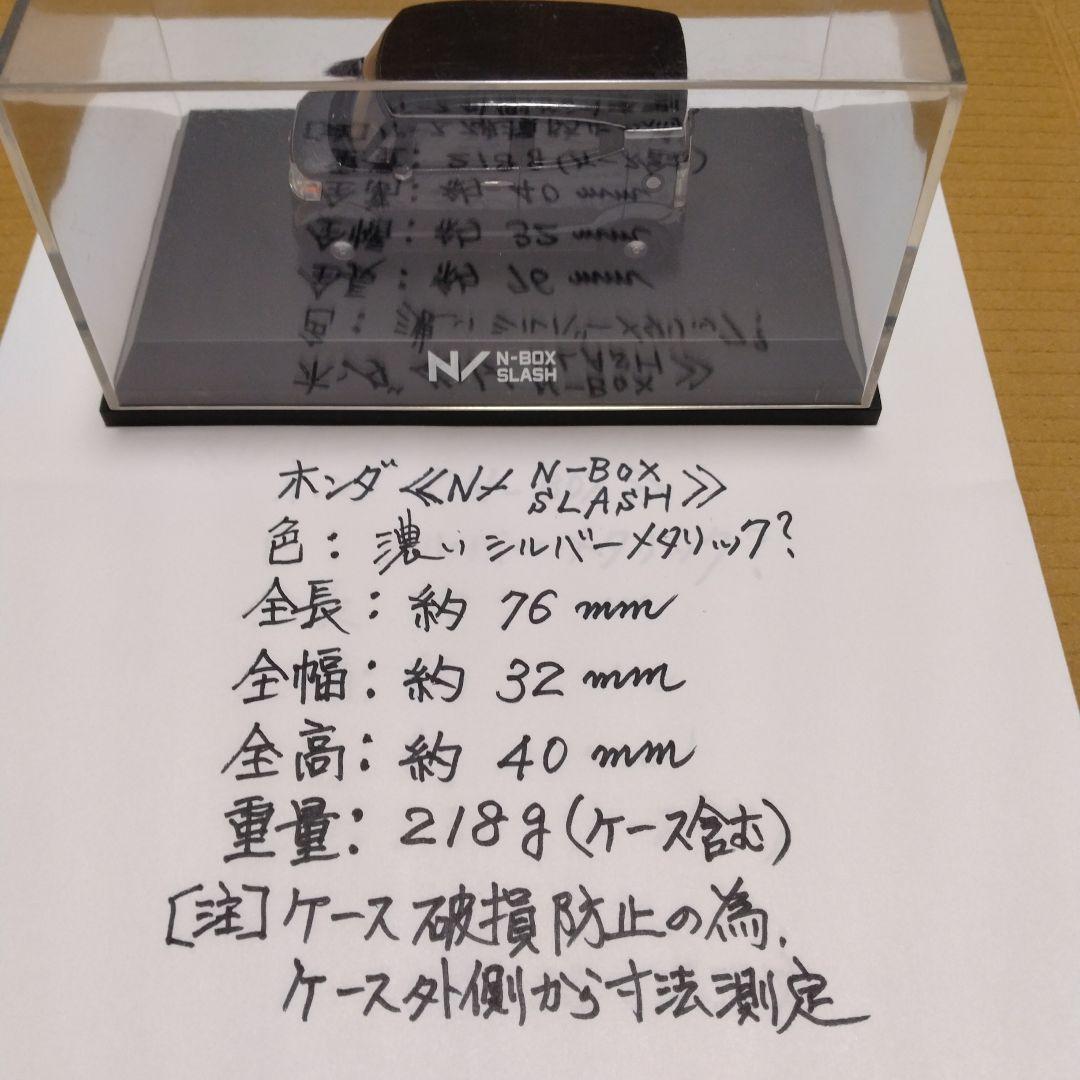 N/ N-BOX
SLASH
ホンダ≪N/ N-BOX
SLASH≫
色：濃いシルバーメタリック？
全長：約 76 mm
全幅：約 32 mm
全高：約 40 mm
重量：218g(ケース含む)
[注]ケース破損防止の為、
ケース外側から寸法測定